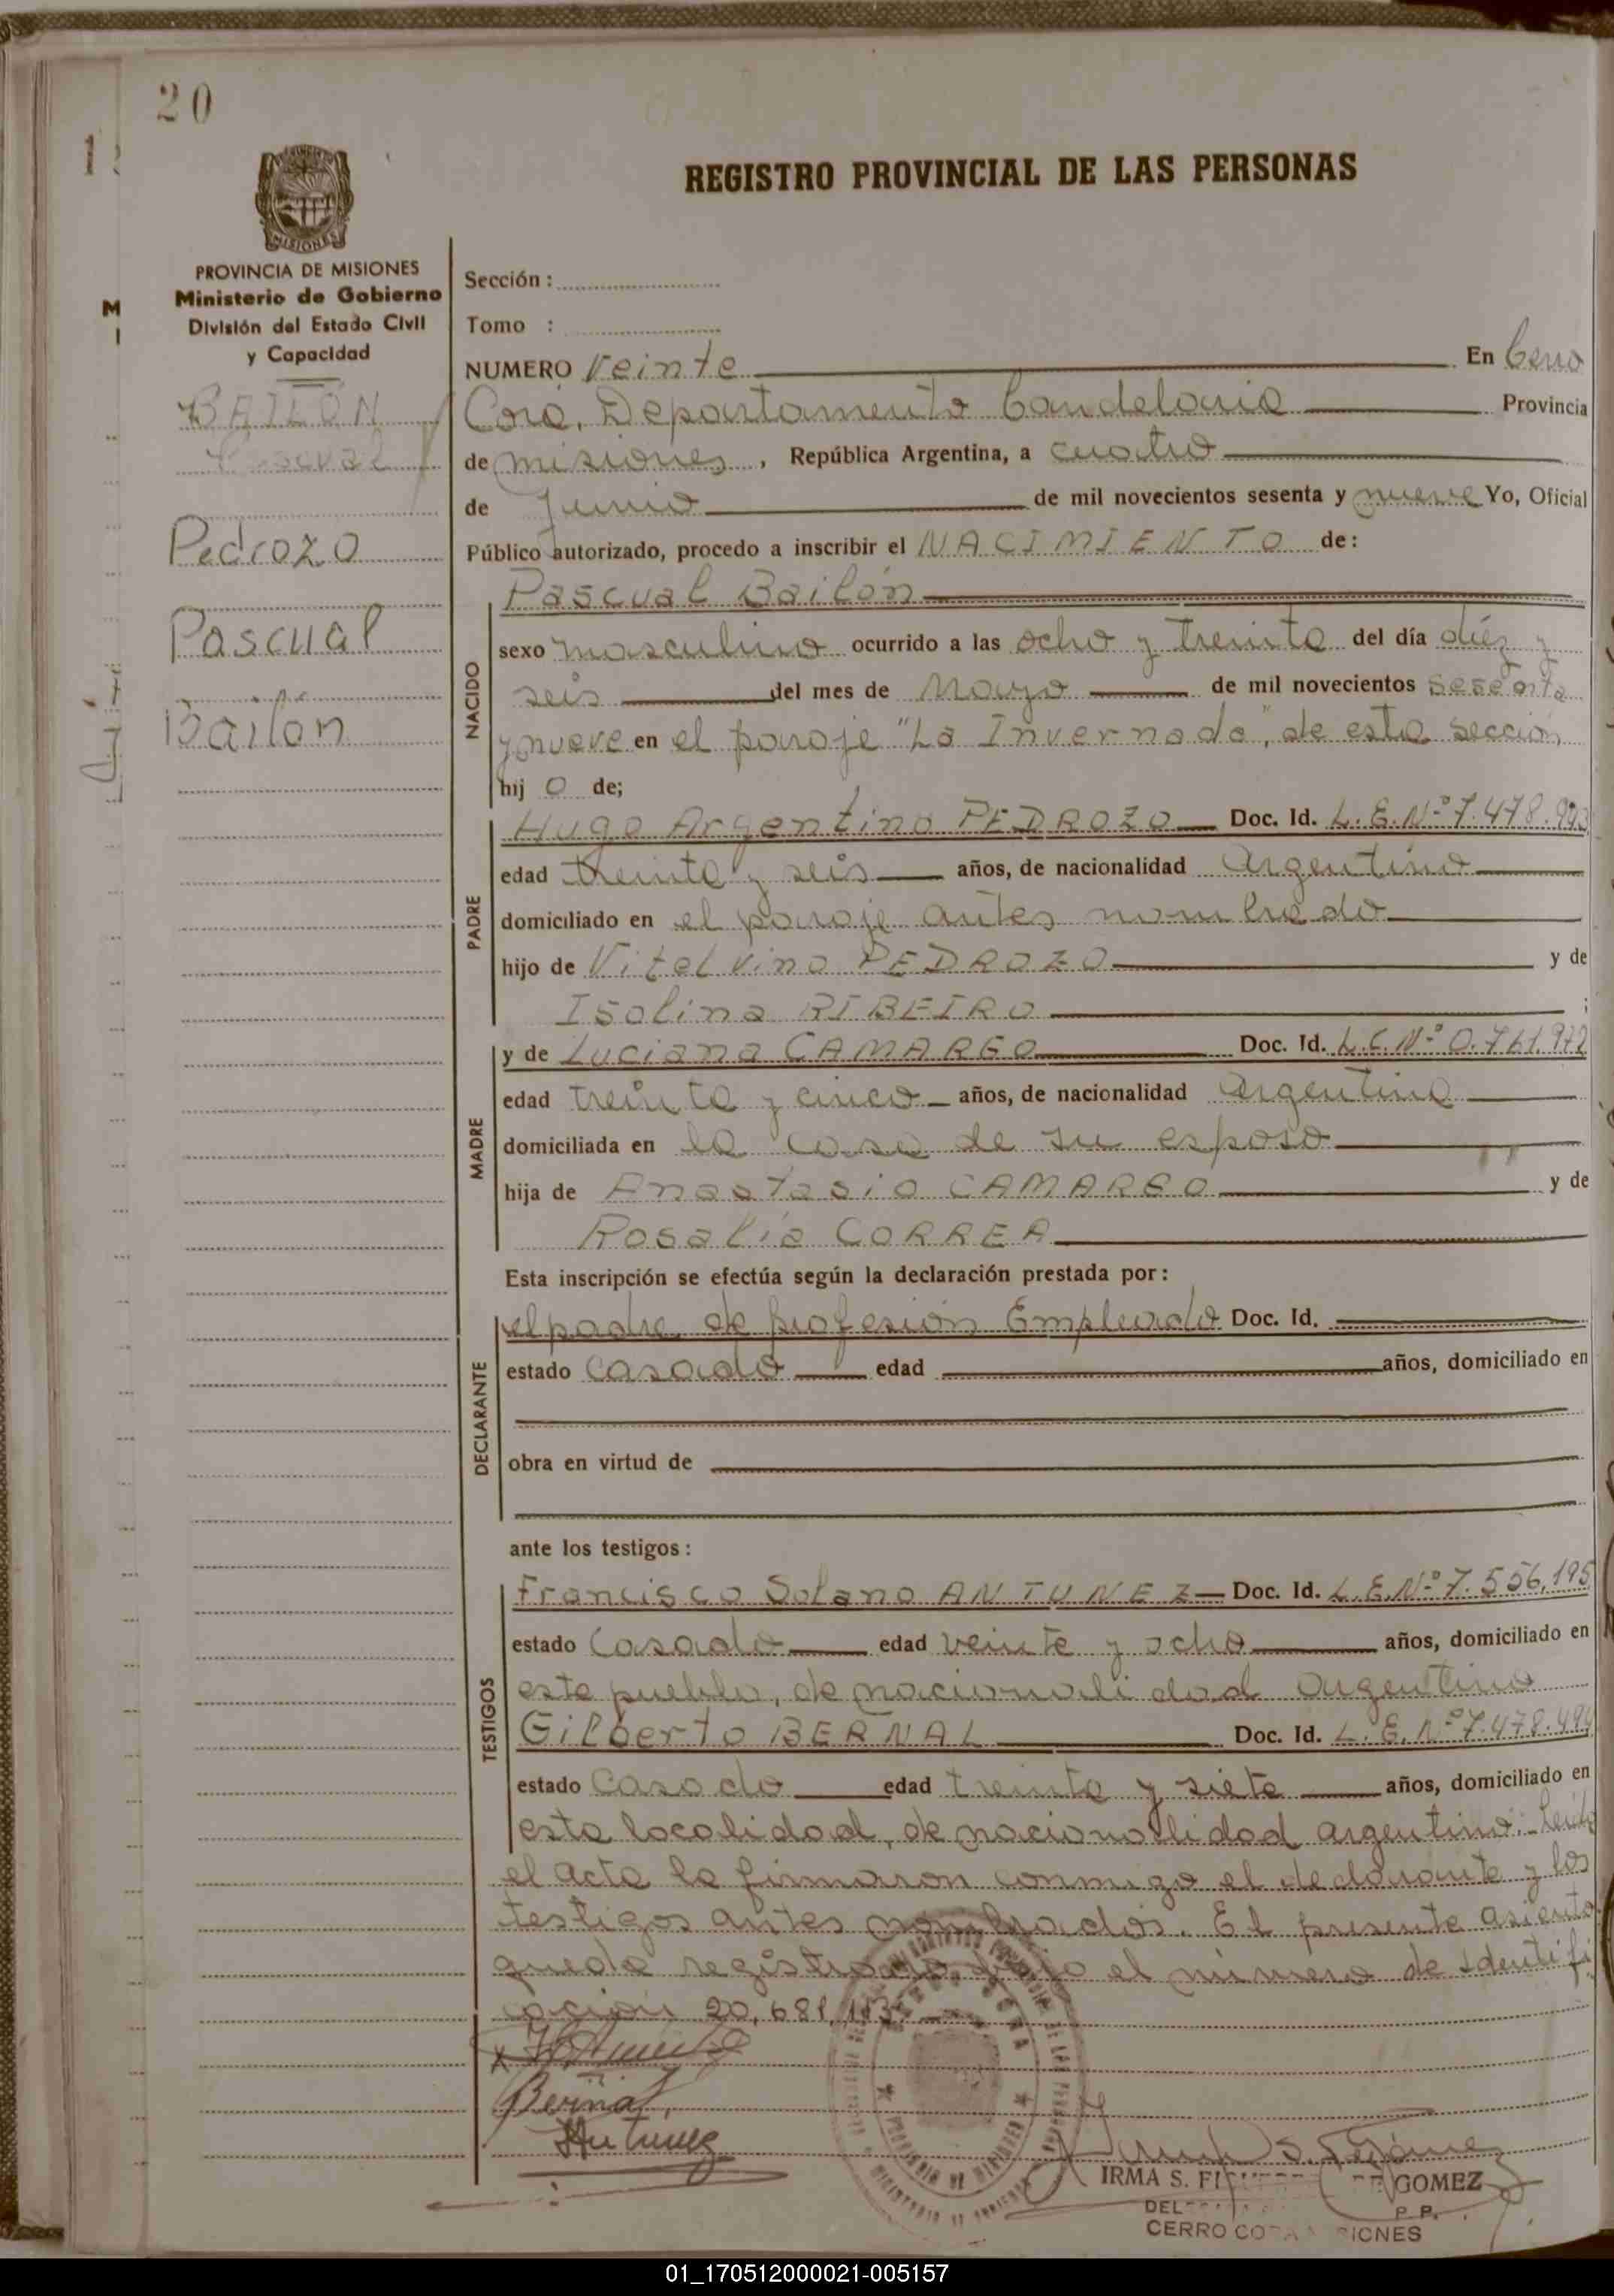 20
REGISTRO PROVINCIAL DE LAS PERSONAS
MISIONES
PROVINCIA DE MISIONES
Ministerio de Gobierno
División del Estado Civil
y Capacidad
BAILON
Pascual
Pedrozo
Pascual
Bailon
Sección :
Tomo :
NUMERO Veinte En Cerro
Corá, Departamento Candelaria Provincia
de misiones, República Argentina, a cuatro
de Junio de mil novecientos sesenta y nueve Yo, Oficial
Público autorizado, procedo a inscribir el NACIMIENTO de:
Pascual Bailón
NACIDO
sexo masculino ocurrido a las ocho y treinta del día diéz y
seis del mes de Mayo de mil novecientos sesenta
y nueve en el paraje "La Invernada", de esta sección
hij o de;
PADRE
Hugo Argentino PEDROZO Doc. Id. L.E.Nº 7.478.993
edad treinta y seis años, de nacionalidad Argentino
domiciliado en el paraje antes nombrado
hijo de Vitelvino PEDROZO y de
Isolina RIBEIRO ;
MADRE
y de Luciana CAMARGO Doc. Id. L.C.Nº 0.761.972
edad treinta y cinco años, de nacionalidad Argentina
domiciliada en la casa de su esposo
hija de Anastasio CAMARGO y de
Rosalía CORREA
Esta inscripción se efectúa según la declaración prestada por:
DECLARANTE
el padre, de profesión Empleado Doc. Id.
estado casado edad años, domiciliado en
obra en virtud de
ante los testigos:
TESTIGOS
Francisco Solano ANTUNEZ Doc. Id. L.E.Nº 7.556.195
estado Casado edad veinte y ocho años, domiciliado en
este pueblo, de nacionalidad argentino
Gilberto BERNAL Doc. Id. L.E.Nº 7.478.494
estado Casado edad treinta y siete años, domiciliado en
esta localidad, de nacionalidad argentino.- Leida
el acta la firmaron conmigo el declarante y los
testigos antes nombrados. El presente asiento
queda registrado bajo el número de Identifi
cación 20,681,113
Bernal
Antunez
IRMA S. DE GOMEZ
P. P.
CERRO CORA MISIONES
01_170512000021-005157